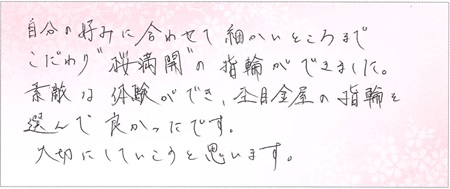 自分の好みに合わせて細かいところまで
こだわり"桜満開"の指輪ができました。
素敵な体験ができ、杢目金屋の指輪を
選んで良かったです。
大切にしていこうと思います。